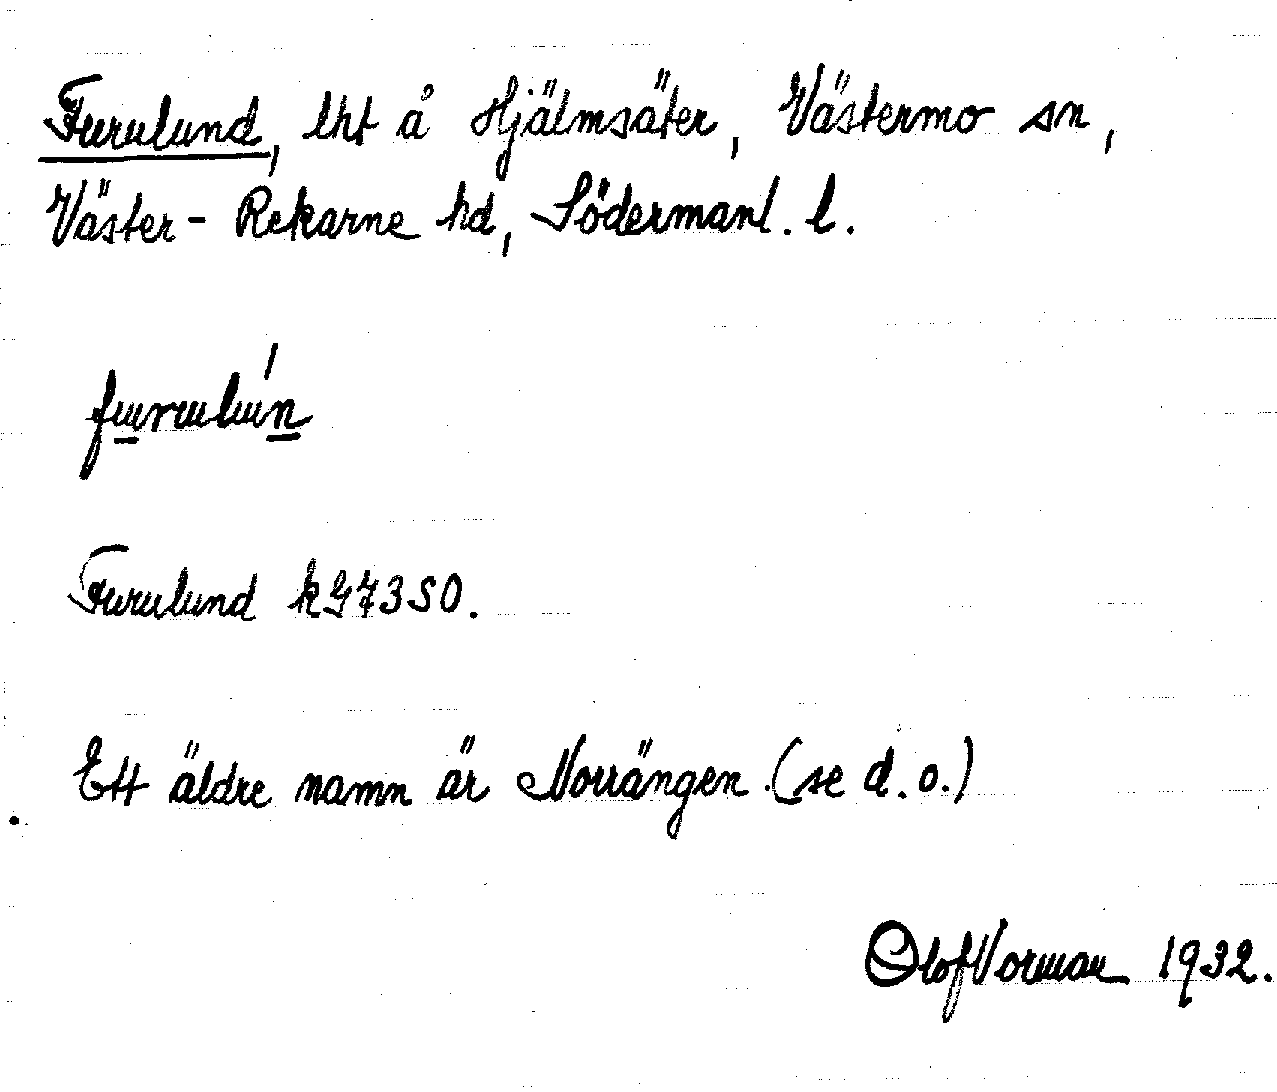 Furulund, lht å Hjälmsäter, Västermo sn,
Väster-Rekarne hd, Södermanl. l.
furulún
Furulund kGZ350.
Ett äldre namn är Norrängen (se d.o.)
Olof Vorman 1932.